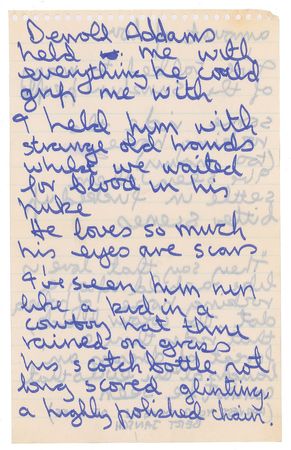 Derroll Addams
held me with
everything he could
grip me with
& held him with
strange old hounds
whilst we waited
for blood in his
puke
He loves so much
his eyes are scars
& I've seen him run
like a kid in a
cowboy hat thru
rained on grass
his scotch bottle not
long scored glinting
a highly polished chain.